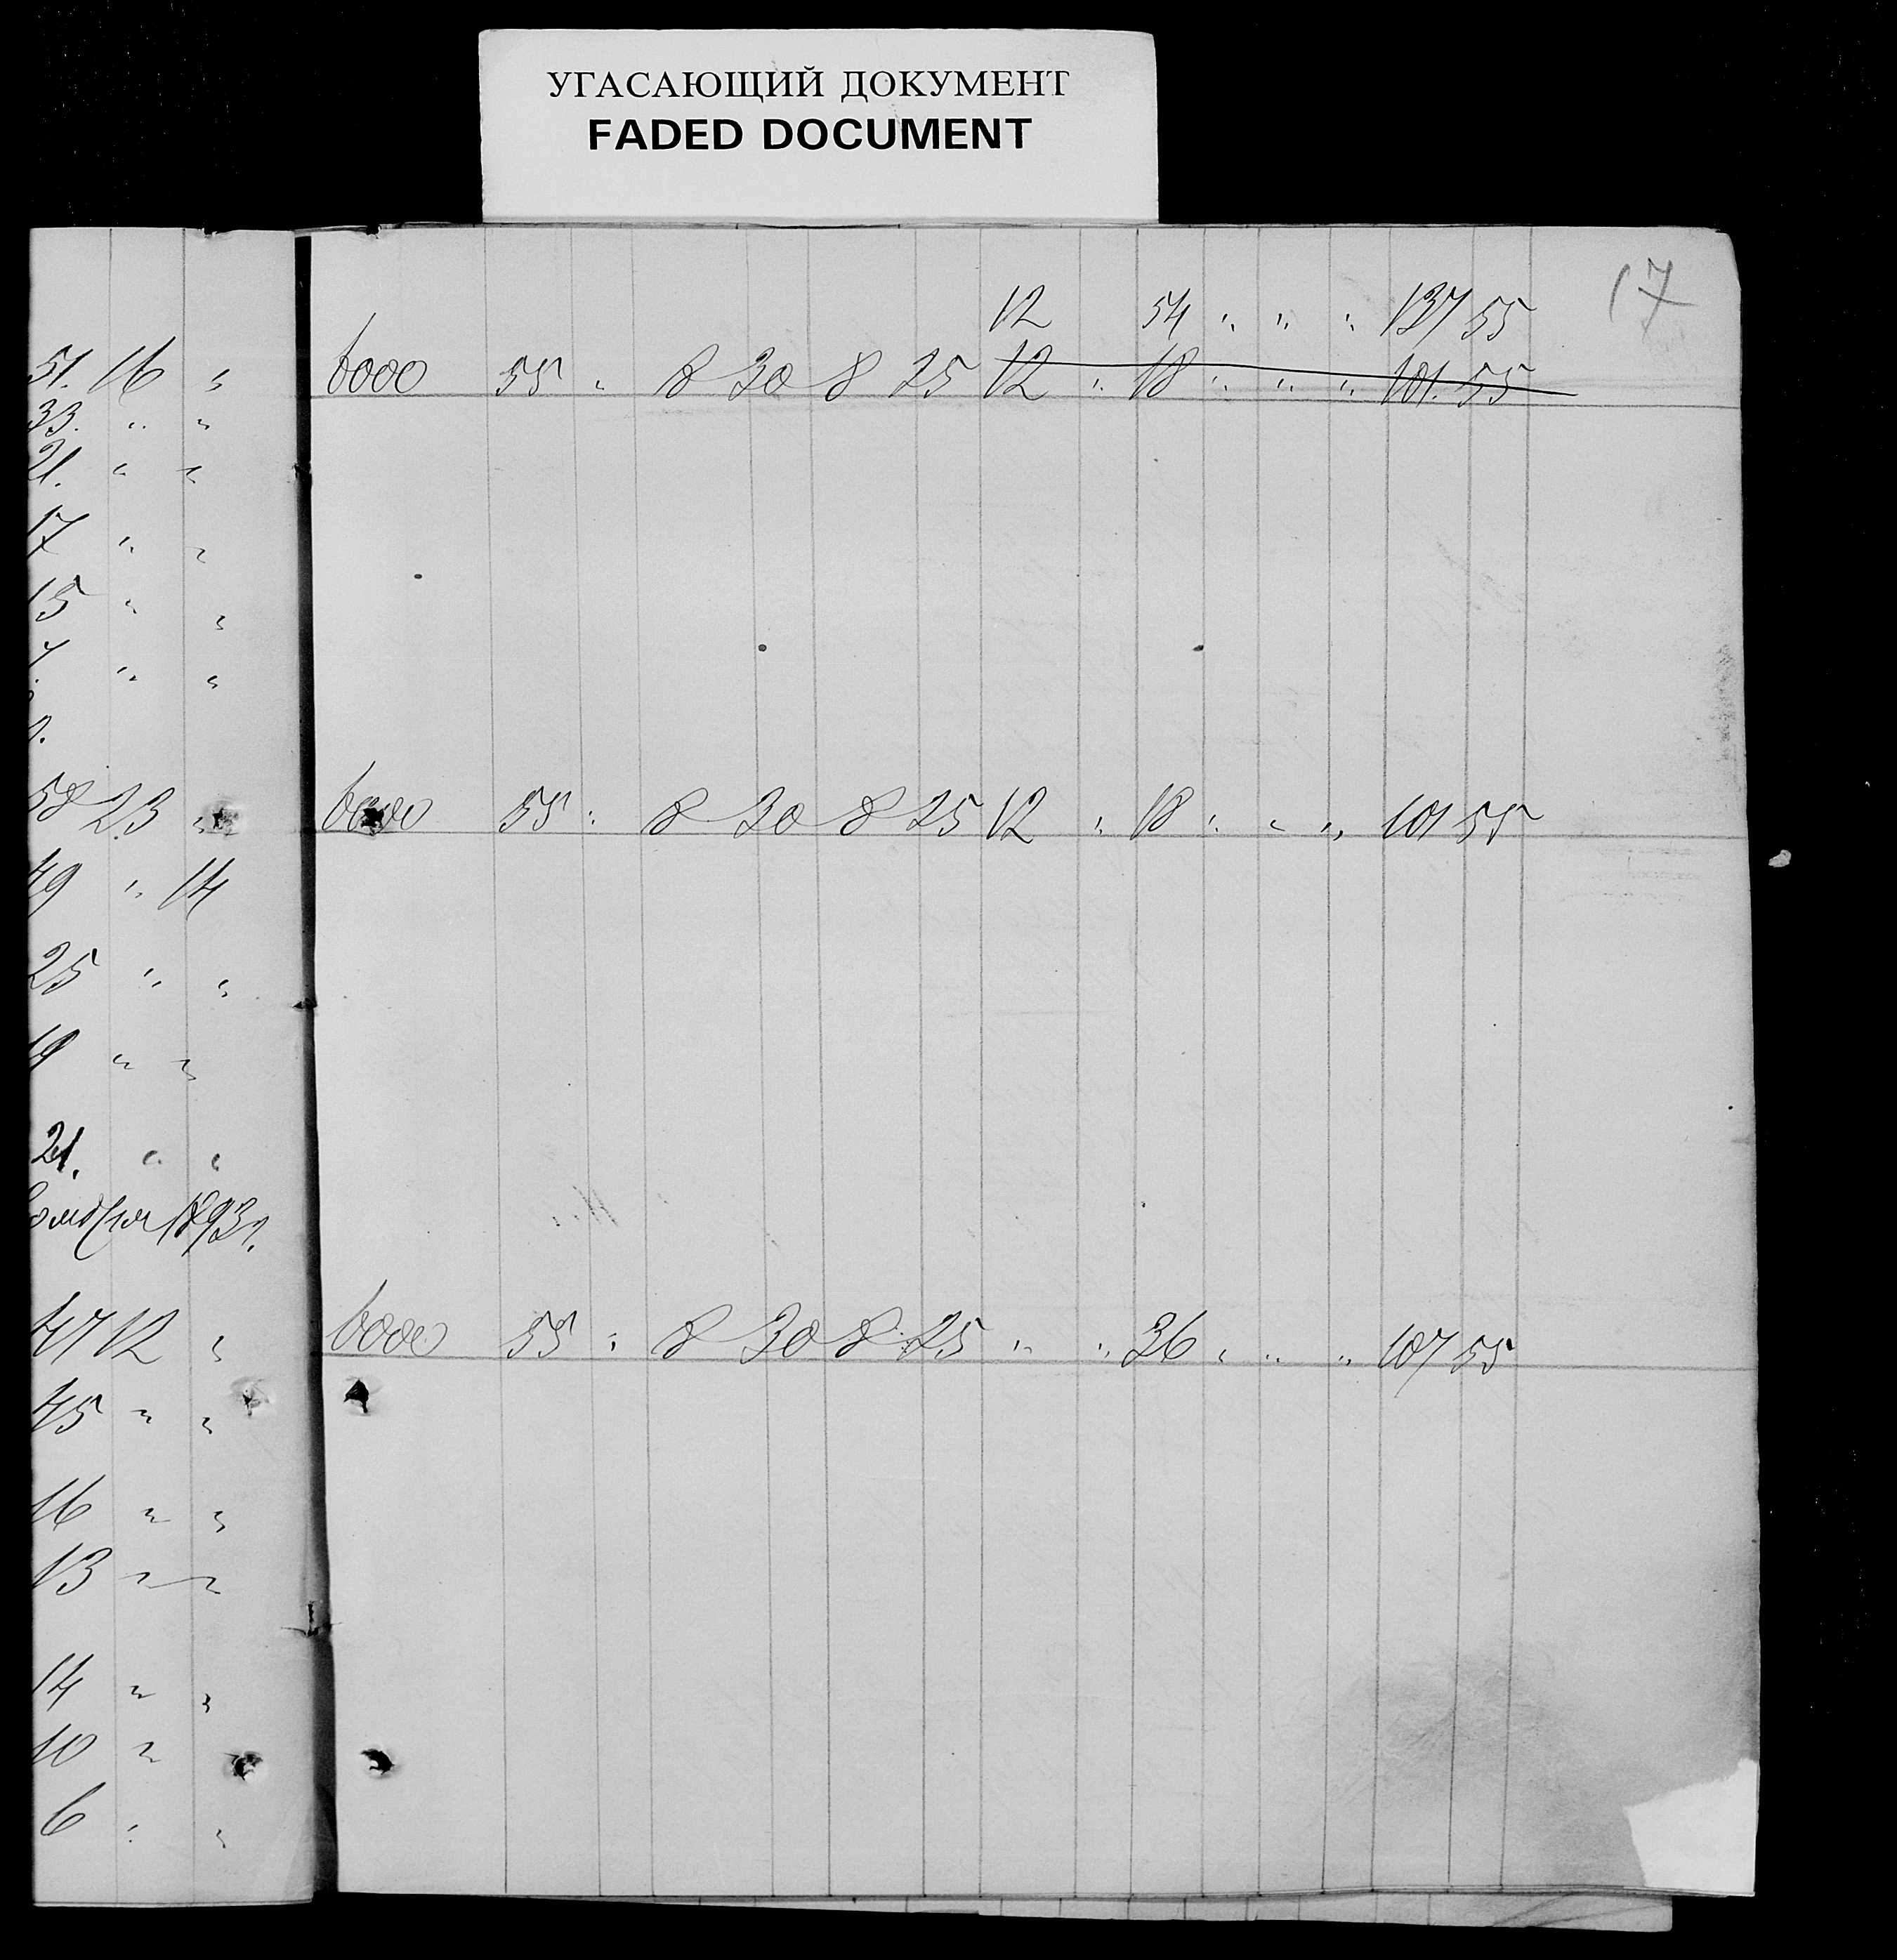 УГАСАЮЩИЙ ДОКУМЕНТ
FADED DOCUMENT
17
12 54 " " " 137 55
6000 55 " 8 30 8 25 12 " 18 " " " 101. 55
6000 55 " 8 30 8 25 12 " 18 " " " 101 55
6000 55 " 8 30 8 25 " " 36 " " " 107 55
51. 16 "
33. " "
21. " "
17 " "
15 " "
58 23 "
49 " 14
25 " "
19 " "
21. " "
1893 г.
47 12 "
45 " "
16 " "
13 " "
14 " "
10 "
6 " "